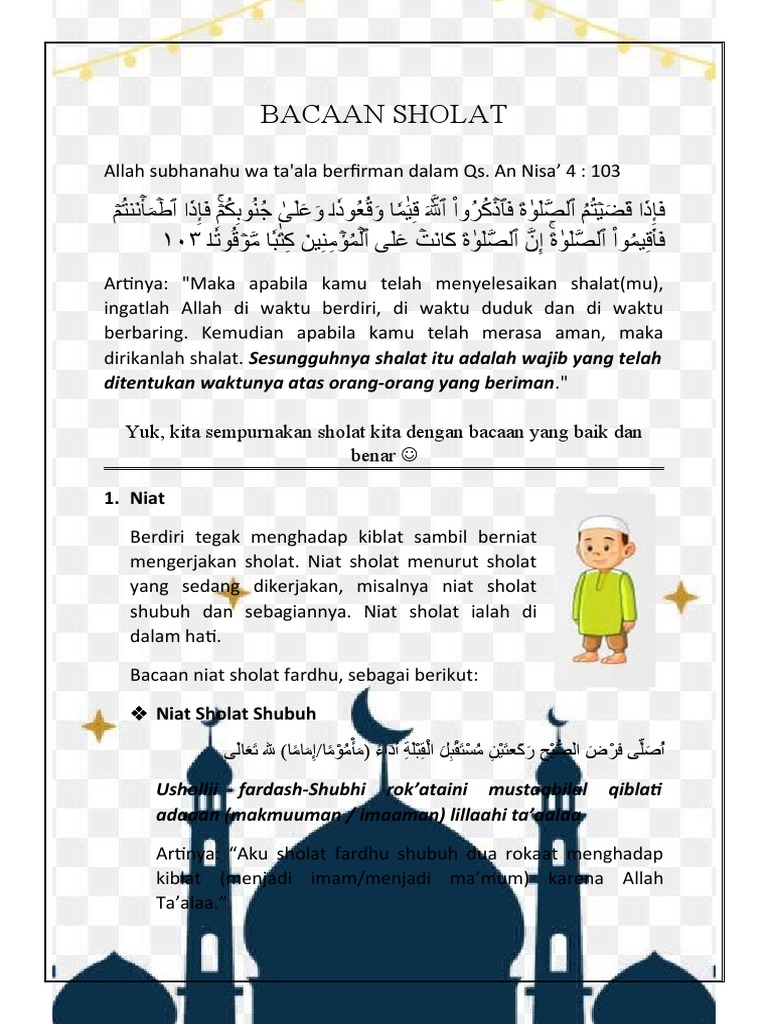 BACAAN SHOLAT
Allah subhanahu wa ta'ala berfirman dalam Qs. An Nisa’ 4 : 103
فَإِذَا قَضَيۡتُمُ ٱلصَّلَوٰةَ فَٱذۡكُرُواْ ٱللَّهَ قِيَٰمٗا وَقُعُودٗا وَعَلَىٰ جُنُوبِكُمۡۚ فَإِذَا ٱطۡمَأۡنَنتُمۡ
فَأَقِيمُواْ ٱلصَّلَوٰةَۚ إِنَّ ٱلصَّلَوٰةَ كَانَتۡ عَلَى ٱلۡمُؤۡمِنِينَ كِتَٰبٗا مَّوۡقُوتٗا ١٠٣
Artinya: "Maka apabila kamu telah menyelesaikan shalat(mu),
ingatlah Allah di waktu berdiri, di waktu duduk dan di waktu
berbaring. Kemudian apabila kamu telah merasa aman, maka
dirikanlah shalat. Sesungguhnya shalat itu adalah wajib yang telah
ditentukan waktunya atas orang-orang yang beriman."
Yuk, kita sempurnakan sholat kita dengan bacaan yang baik dan
benar ☺
1. Niat
Berdiri tegak menghadap kiblat sambil berniat
mengerjakan sholat. Niat sholat menurut sholat
yang sedang dikerjakan, misalnya niat sholat
shubuh dan sebagiannya. Niat sholat ialah di
dalam hati.
Bacaan niat sholat fardhu, sebagai berikut:
❖ Niat Sholat Shubuh
اُصَلِّى فَرْضَ الصُّبْحِ رَكْعَتَيْنِ مُسْتَقْبِلَ الْقِبْلَةِ اَدَاءً (مَأْمُوْمًا/إِمَامًا) لله تَعَالَى
Ushollii fardash-Shubhi rok’ataini mustaqbilal qiblati
adaaan (makmuuman / imaaman) lillaahi ta’aalaa.
Artinya: “Aku sholat fardhu shubuh dua rokaat menghadap
kiblat (menjadi imam/menjadi ma’mum) karena Allah
Ta’alaa.”